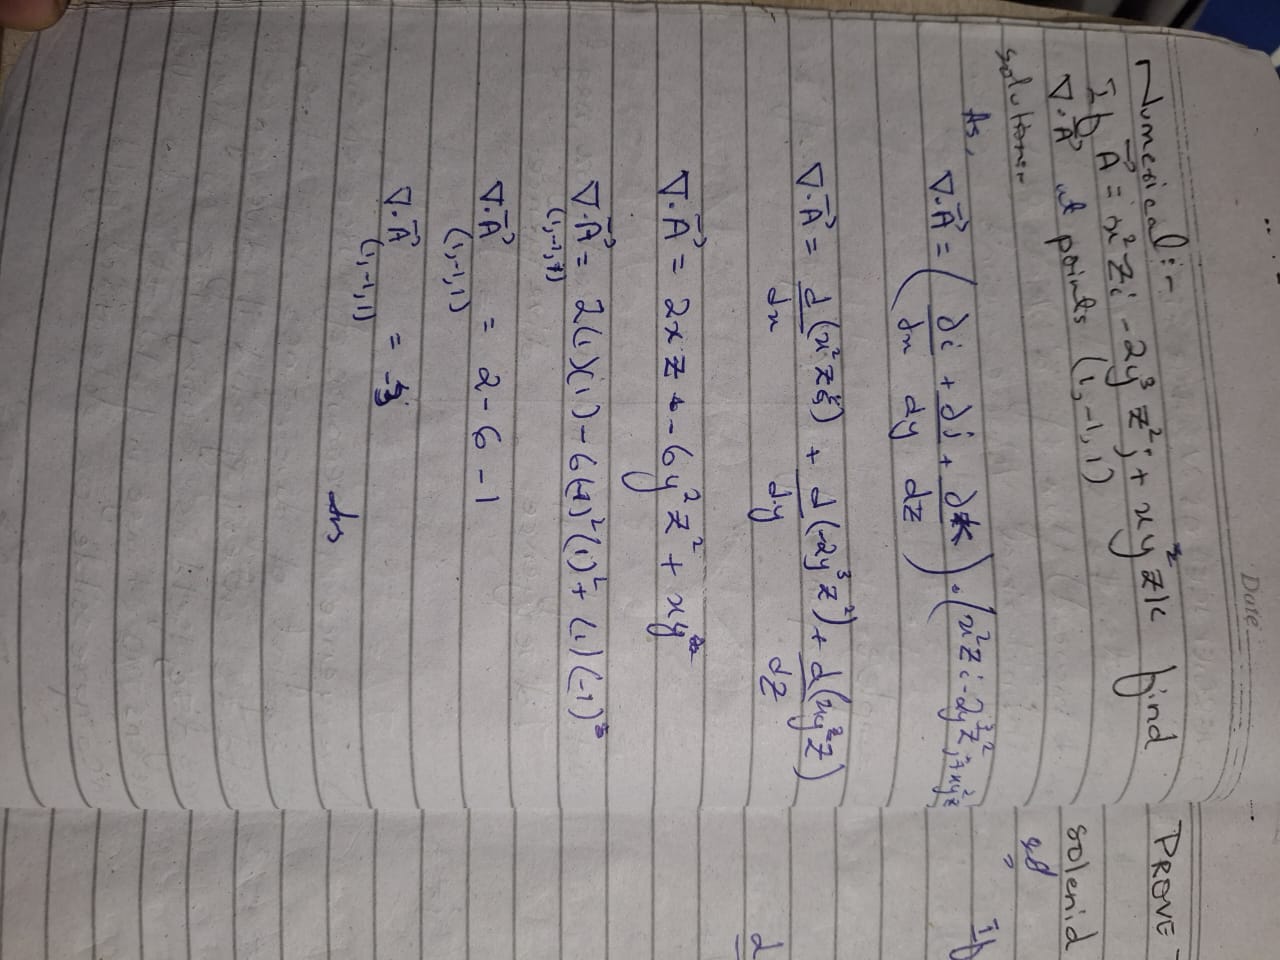 Date
Numerical:-
If A⃗ = x²zi - 2y³z²j + xy²zk find
∇·A⃗ at points (1,-1,1)
Solution:-
As,
∇·A⃗ = (∂i/∂x + ∂j/∂y + ∂k/∂z) · (x²zi - 2y³z²j + xy²z
∇·A⃗ = d/dx (x²z) + d/dy (-2y³z²) + d/dz (xy²z)
∇·A⃗ = 2xz + - 6y²z² + xy²
∇·A⃗ (1,-1,1) = 2(1)(1) - 6(-1)²(1)² + (1)(-1)³
∇·A⃗ (1,-1,1) = 2 - 6 - 1
∇·A⃗ (1,-1,1) =
Ans
PROVE
solenid
If
d